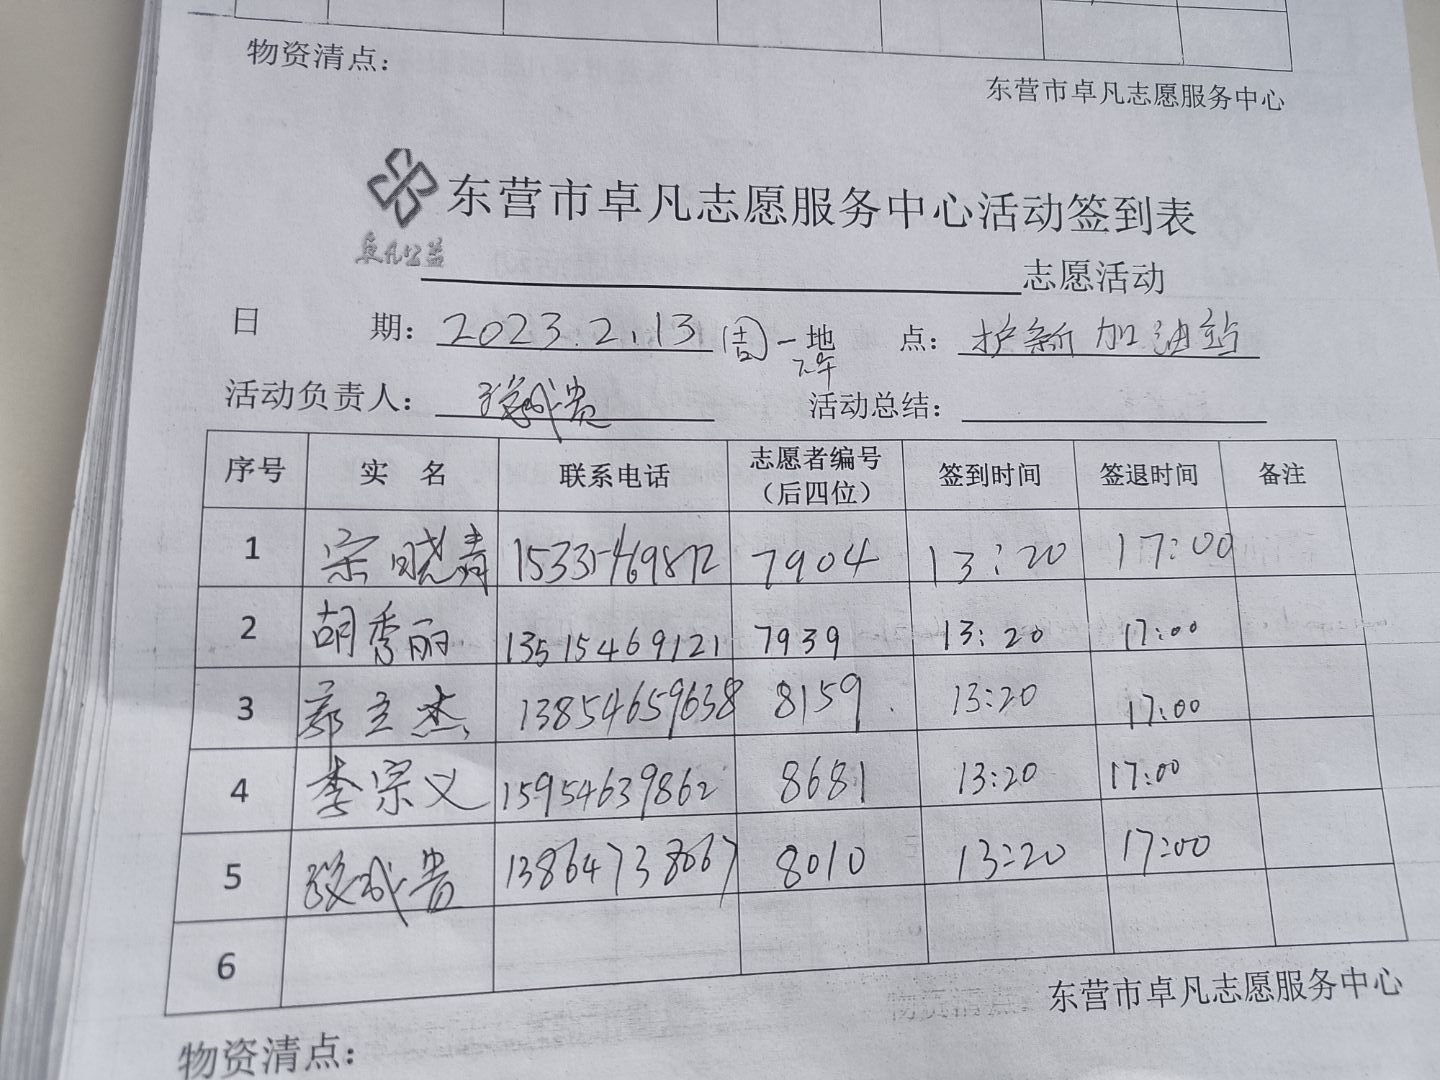 物资清点：
东营市卓凡志愿服务中心
东营市卓凡志愿服务中心活动签到表
卓凡公益
志愿活动
日 期： 2023.2.13 周一 下午 地 点： 护新加油站
活动负责人： 成贵 活动总结：
序号 实 名 联系电话 志愿者编号（后四位） 签到时间 签退时间 备注
1 宗晓青 15335469872 7904 13:20 17:00
2 胡秀丽 13515469121 7939 13:20 17:00
3 郑立杰 13854659638 8159 13:20 17:00
4 李宗义 15954639862 8681 13:20 17:00
5 成贵 13864738067 8010 13:20 17:00
6
东营市卓凡志愿服务中心
物资清点：